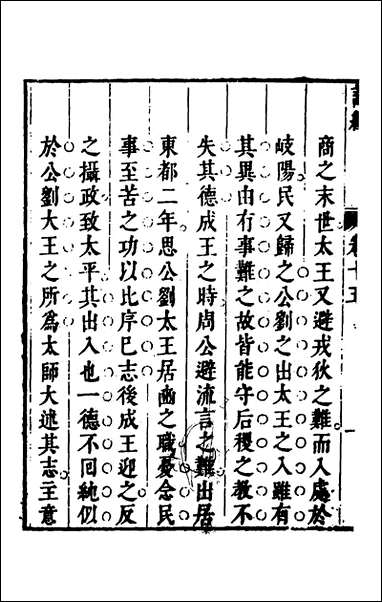 商之末世太王又避戎狄之難而入處於
岐陽民又歸之公劉之出太王之入雖有
其異由有事難之故皆能守后稷之教不
失其德成王之時周公避流言之難出居
東都二年思公劉太王居豳之職憂念民
事至苦之功以比序已志後成王迎之反
之攝政致太平其出入也一德不回純似
於公劉大王之所爲太師大述其志主意
卷十五